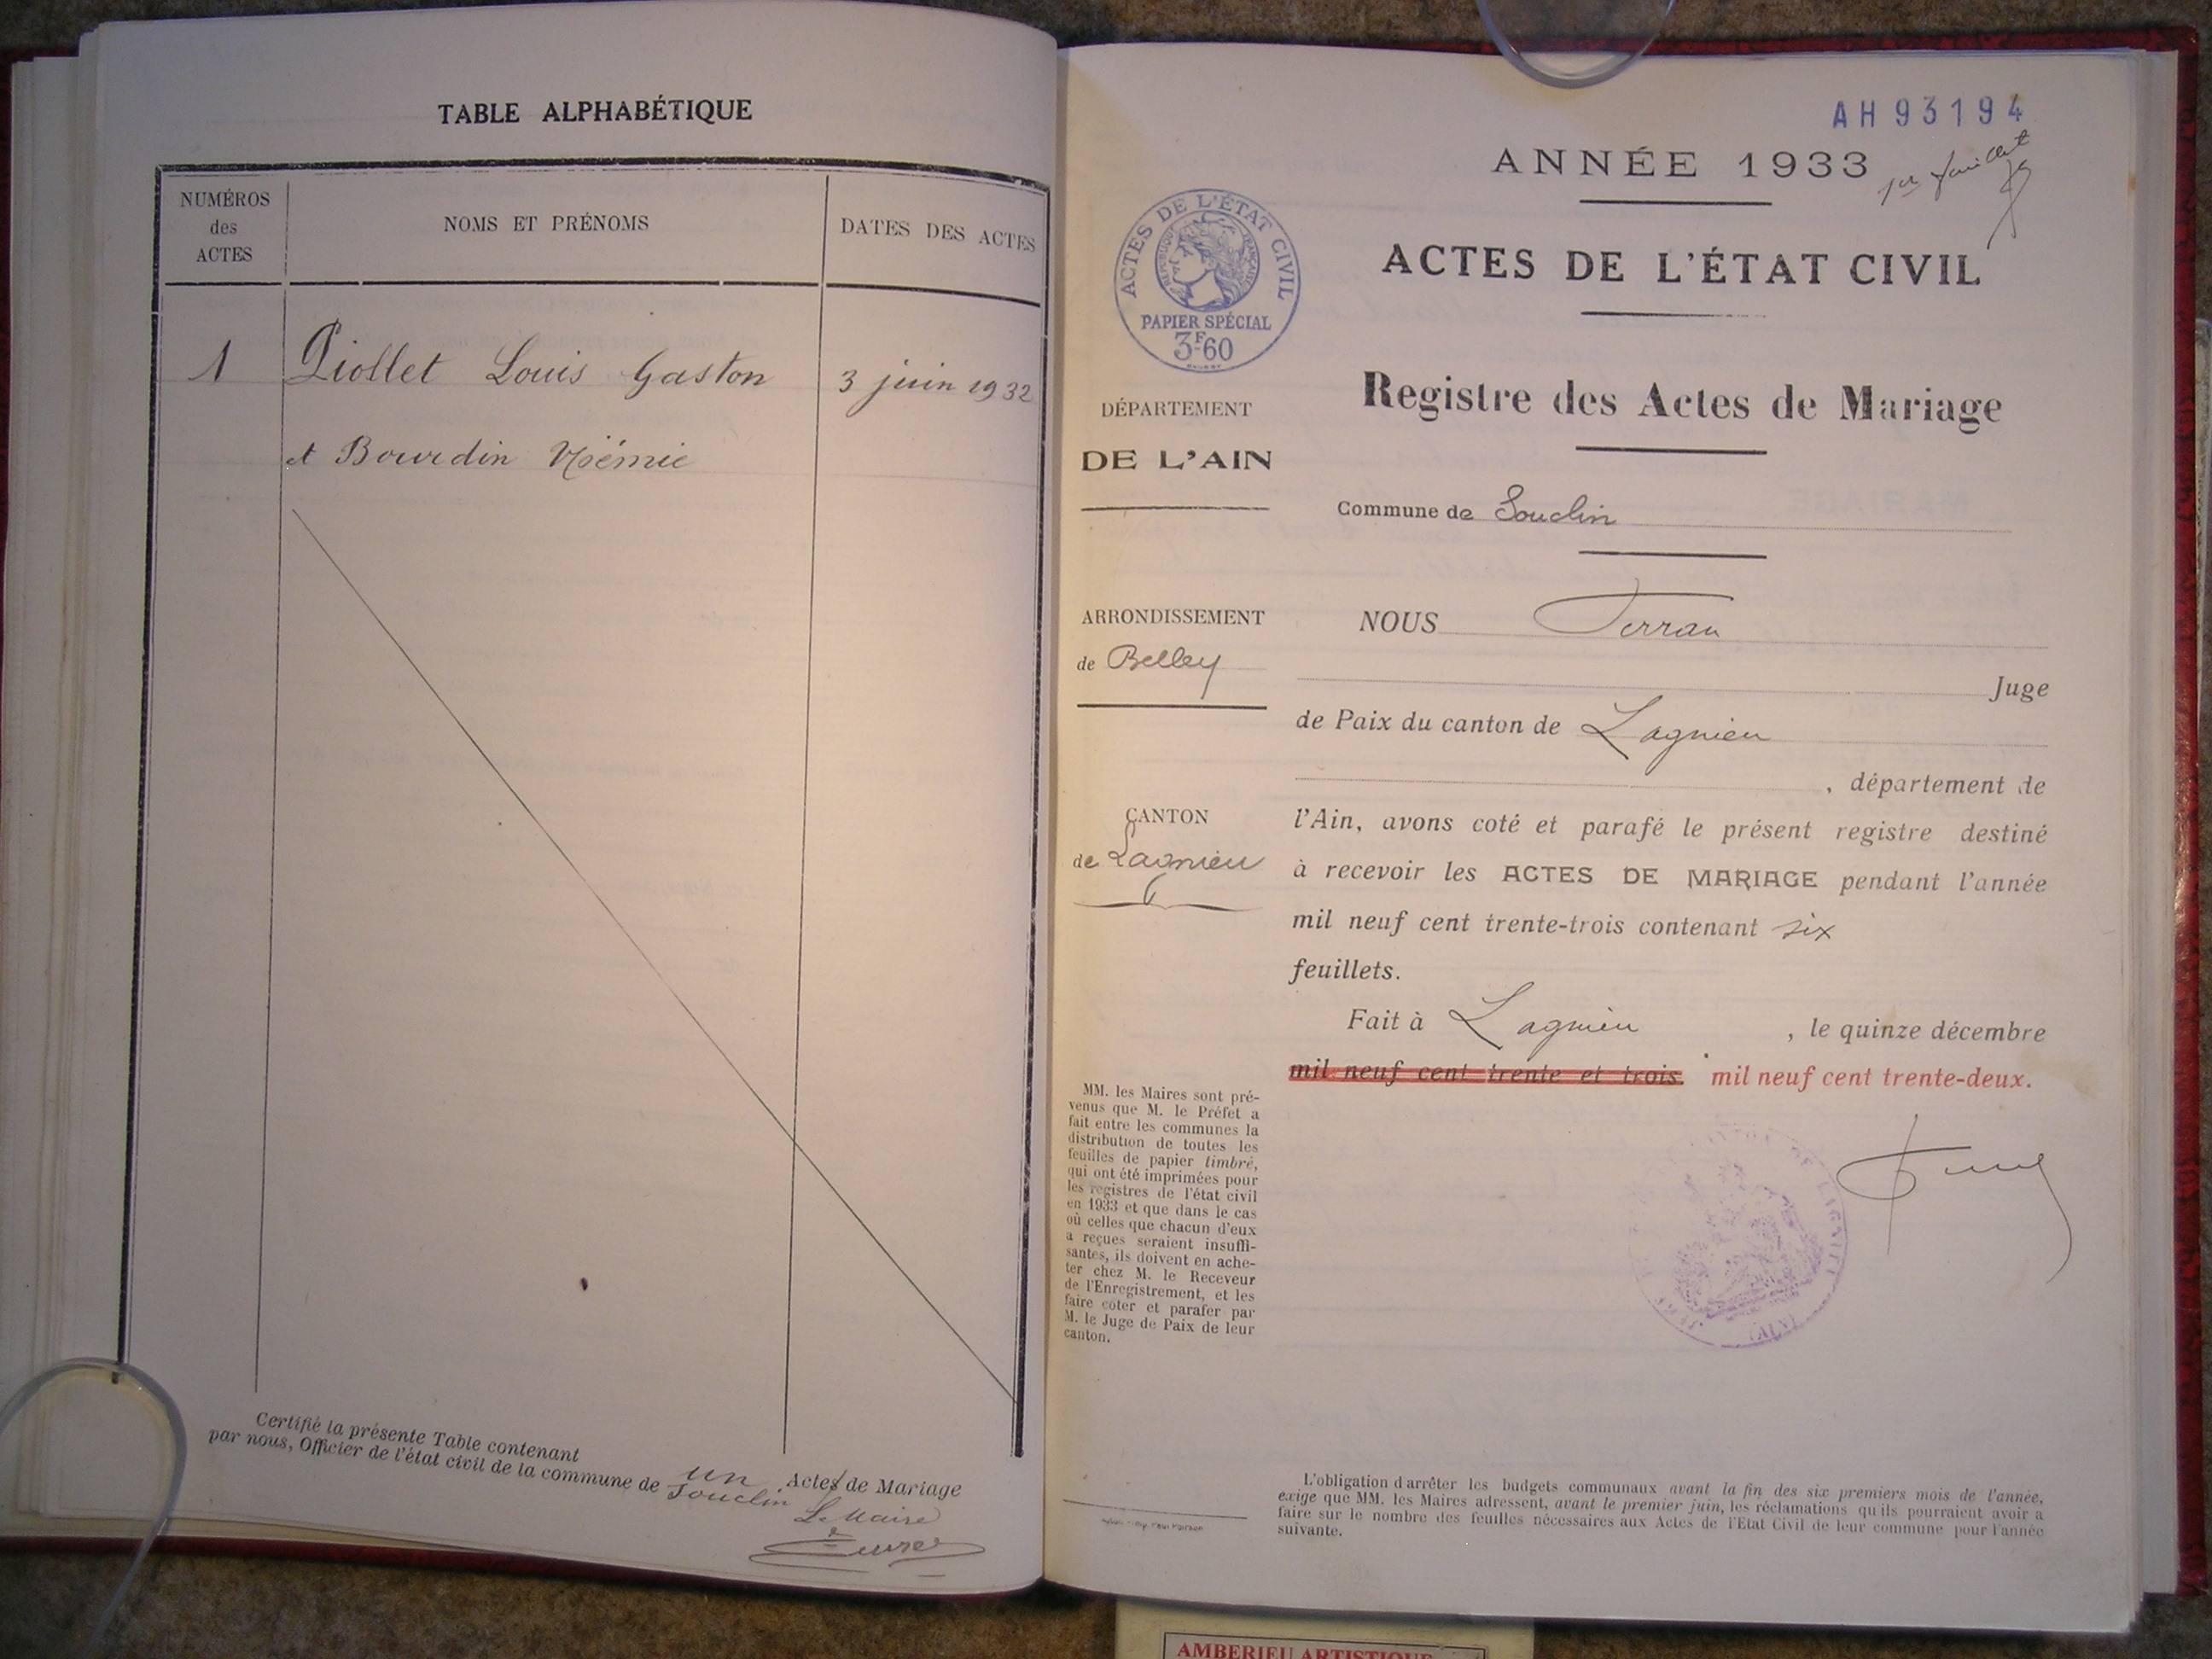 TABLE ALPHABÉTIQUE
NUMÉROS
des
ACTES
NOMS ET PRÉNOMS
DATES DES ACTES
1
Piollet Louis Gaston
3 juin 1932
et Bourdin Noëmie
Certifié la présente Table contenant un Actes de Mariage
par nous, Officier de l'état civil de la commune de Souclin
Le Maire
AH93194
ANNÉE 1933
1er feuillet
ACTES DE L'ÉTAT CIVIL
RÉPUBLIQUE FRANÇAISE
PAPIER SPÉCIAL
3F60
ACTES DE L'ÉTAT CIVIL
Registre des Actes de Mariage
DÉPARTEMENT
DE L'AIN
Commune de Souclin
ARRONDISSEMENT
de Belley
NOUS Ferran
Juge
de Paix du canton de Lagnieu
, département de
CANTON
de Lagnieu
l'Ain, avons coté et parafé le présent registre destiné
à recevoir les ACTES DE MARIAGE pendant l'année
mil neuf cent trente-trois contenant six
feuillets.
Fait à Lagnieu , le quinze décembre
mil neuf cent trente et trois. mil neuf cent trente-deux.
MM. les Maires sont pré-
venus que M. le Préfet a
fait entre les communes la
distribution de toutes les
feuilles de papier timbré,
qui ont été imprimées pour
les registres de l'état civil
en 1933 et que dans le cas
où celles que chacun d'eux
a reçues seraient insuffi-
santes, ils doivent en ache-
ter chez M. le Receveur
de l'Enregistrement, et les
faire coter et parafer par
M. le Juge de Paix de leur
canton.
(AIN)
L'obligation d'arrêter les budgets communaux avant la fin des six premiers mois de l'année,
exige que MM. les Maires adressent, avant le premier juin, les réclamations qu'ils pourraient avoir a
faire sur le nombre des feuilles nécessaires aux Actes de l'Etat Civil de leur commune pour l'année
suivante.
AMBERIEU ARTISTIQUE